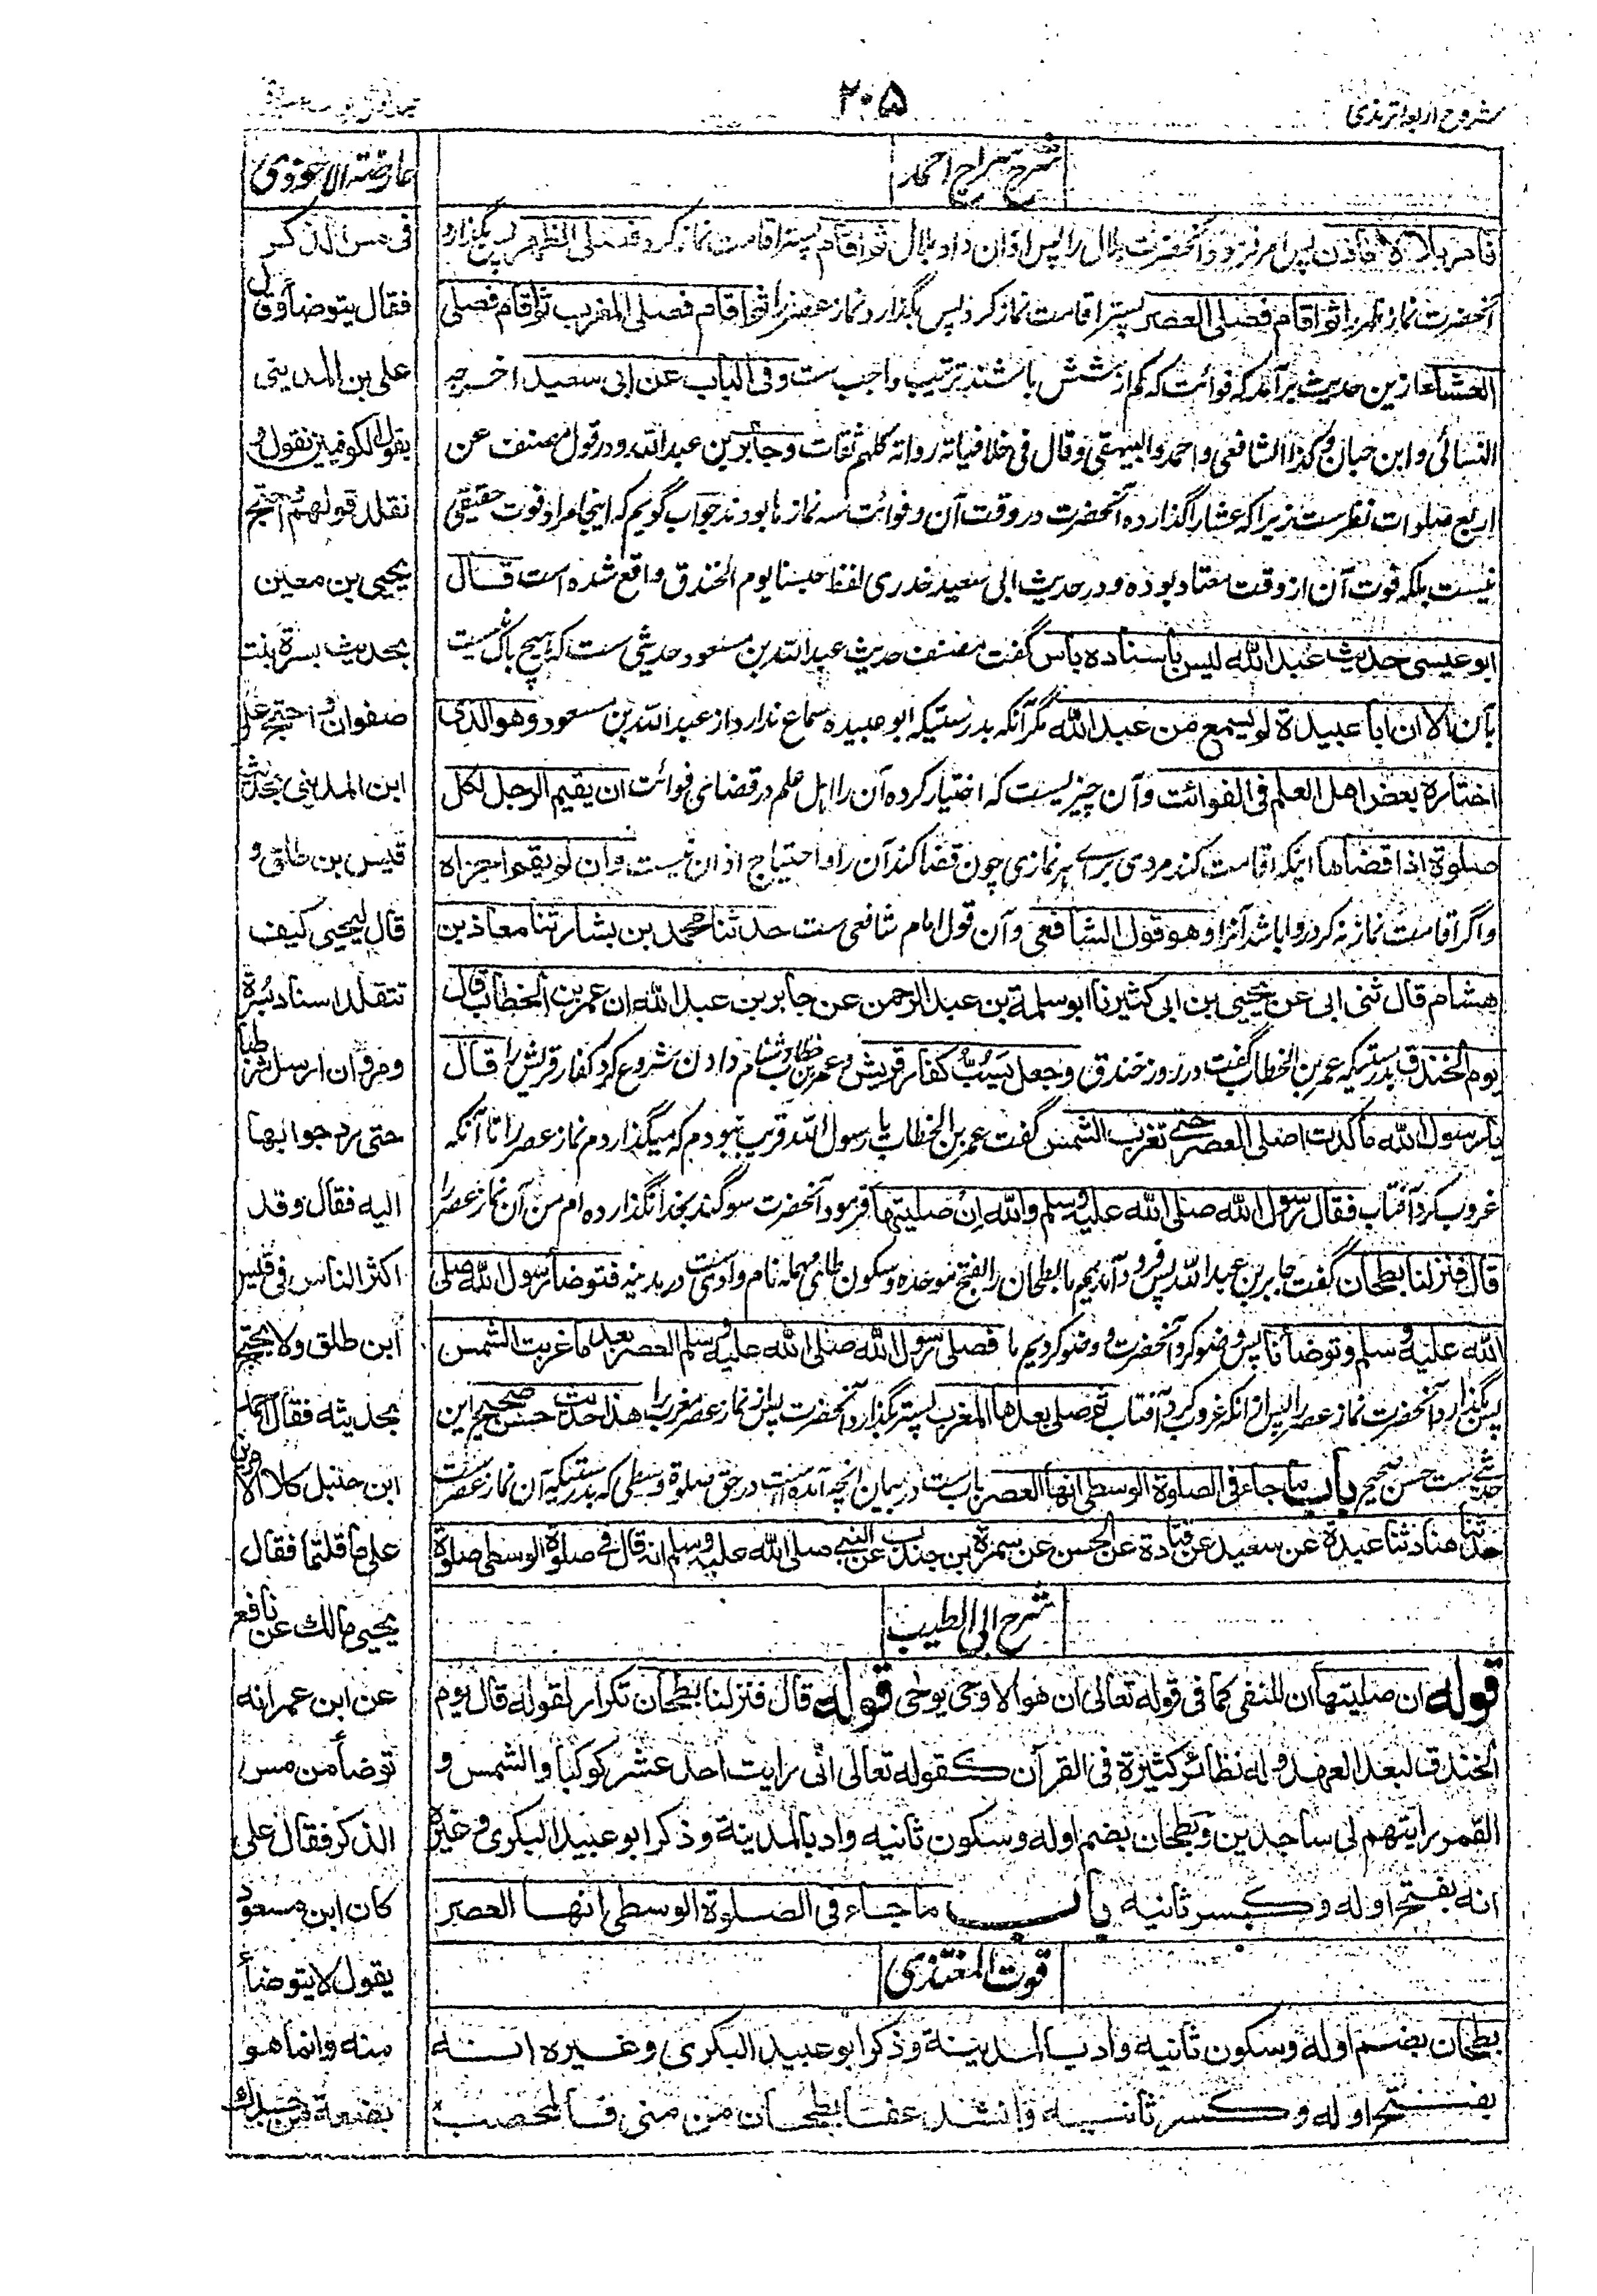 شروح اربعہ ترمذی
۲۰۵
شرح سراج احمد
فامر بلالا فاذن پس امر فرمود آنحضرت بلال را پس اذان داد بلال ثم اقام پستر اقامت نماز کرد فصلی الظهر پس بگزارد
آنحضرت نماز ظهر را ثم اقام فصلی العصر پستر اقامت نماز کرد پس بگذارد نماز عصر را ثم اقام فصلی المغرب ثم اقام فصلی
العشاء ازین حدیث برآمد که فوائت که کم از شش باشند ترتیب واجب ست وفی الباب عن ابی سعید اخرجه
النسائی وابن حبان وکذا الشافعی واحمد والبیهقی وقال فی خلافیاته رواته کلهم ثقات وجابر بن عبدالله ودر قول مصنف عن
اربع صلوات نظرست زیرا که عشا را گذارده آنحضرت در وقت آن و فوائت سه نماز ها بودند جواب گویم که اینجا مراد فوت حقیقی
نیست بلکه فوت آن از وقت معتاد بوده و در حدیث ابی سعید خدری لفظ حبسنا یوم الخندق واقع شده است قال
ابو عیسی حدیث عبد الله لیس باسناده باس گفت مصنف حدیث عبد الله بن مسعود حدیثی ست که هیچ باک نیست
بآن الا ان ابا عبیدة لم یسمع من عبد الله مگر آنکه بدرستیکه ابو عبیده سماع ندارد از عبد الله بن مسعود وهو الذی
اختاره بعض اهل العلم فی الفوائت وآن چیزیست که اختیار کرده آن را اهل علم در قضای فوائت ان یقیم الرجل لکل
صلوة اذا قضاها اینکه اقامت کند مردی برای هر نمازی چون قضا کند آن را و احتیاج اذان نیست وان لم یقم اجزاه
واگر اقامت نماز نه کرد روا باشد آنرا وهو قول الشافعی وآن قول امام شافعی ست حدثنا محمد بن بشار ثنا معاذ بن
هشام قال ثنی ابی عن یحیی بن ابی کثیر نا ابو سلمة بن عبد الرحمن عن جابر بن عبد الله ان عمر بن الخطاب قال
یوم الخندق بدرستیکه عمر بن الخطاب گفت در روز خندق وجعل یسب کفار قریش وعمر بن خطاب دشنام دادن شروع کرد کفار قریش را قال
یا رسول الله ما کدت اصلی العصر حتی تغرب الشمس گفت عمر بن الخطاب یا رسول الله قریب نبودم که میگذاردم نماز عصر را تا آنکه
غروب کرد آفتاب فقال رسول الله صلی الله علیه وسلم والله ان صلیتها فرمود آنحضرت سوگند بخدا نگذارده ام من آن نماز عصر را
قال فنزلنا بطحان گفت جابر بن عبد الله پس فرود آمدیم ما بطحان را بفتح موحده وسکون طای مهمله نام وادی ست در مدینه فتوضأ رسول الله صلی
الله علیه وسلم وتوضأنا پس وضو کرد آنحضرت و وضو کردیم ما فصلی رسول الله صلی الله علیه وسلم العصر بعد ما غربت الشمس
پس بگذارد آنحضرت نماز عصر را پس از آنکه غروب کرد آفتاب ثم صلی بعدها المغرب پستر بگذارد آنحضرت پس از نماز عصر مغرب را هذا حدیث حسن صحیح این
حدیثی ست حسن صحیح باب ما جاء فی الصلوة الوسطی انها العصر باب ست در بیان انچه آمده است در حق صلوة وسطی که بدرستیکه آن نماز عصرست
حدثنا هناد ثنا عبدة عن سعید عن قتادة عن الحسن عن سمرة بن جندب عن النبی صلی الله علیه وسلم انه قال فی صلوة الوسطی صلوة
شرح ابی الطیب
قوله ان صلیتها ان للنفی کما فی قوله تعالی ان هو الا وحی یوحی قوله قال فنزلنا بطحان تکرار لقوله قال یوم
الخندق لبعد العهد وله نظائر کثیرة فی القرآن کقوله تعالی انی رایت احد عشر کوکبا والشمس و
القمر رایتهم لی ساجدین وبطحان بضم اوله وسکون ثانیه واد بالمدینة وذکر ابو عبید البکری وغیره
انه بفتح اوله وکسر ثانیه باب ما جاء فی الصلوة الوسطی انها العصر
قوت المغتذی
بطحان بضم اوله وسکون ثانیه واد بالمدینة وذکر ابو عبید البکری وغیره انه
بفتح اوله وکسر ثانیه وانشد عفا بطحان من منی فالمحصب
عارضة الاحوذی
فی مس الذکر
فقال یتوضأ وقال
علی بن المدینی
یقول الکوفیین نقول و
نقلد قولهم واحتج
یحیی بن معین
بحدیث بسرة بنت
صفوان واحتج علی
ابن المدینی بحدیث
قیس بن طلق و
قال لیحیی کیف
تتقلد اسناد بسرة
ومروان ارسل شرطیا
حتی رد جوابها
الیه فقال وقد
اکثر الناس فی قیس
ابن طلق ولا یحتج
بحدیثه فقال احمد
ابن حنبل کلا الامرین
علی ما قلتما فقال
یحیی مالک عن نافع
عن ابن عمر انه
توضأ من مس
الذکر فقال علی
کان ابن مسعود
یقول لا یتوضأ
منه وانما هو
بضعة من جسدک